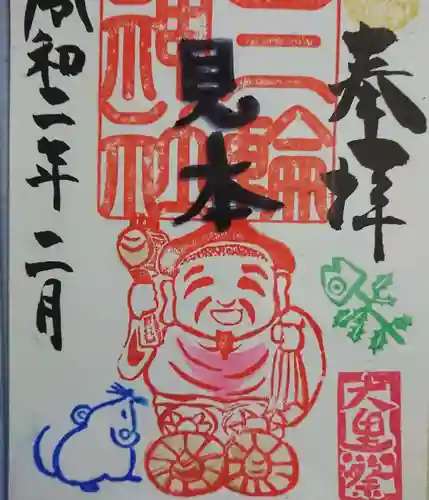 奉拝
三輪
神社
見本
大黒祭
令和二年二月